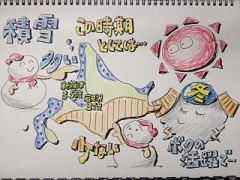 積雪
この時期
としては…
多い
少ない
冬
ボクの
活躍で…